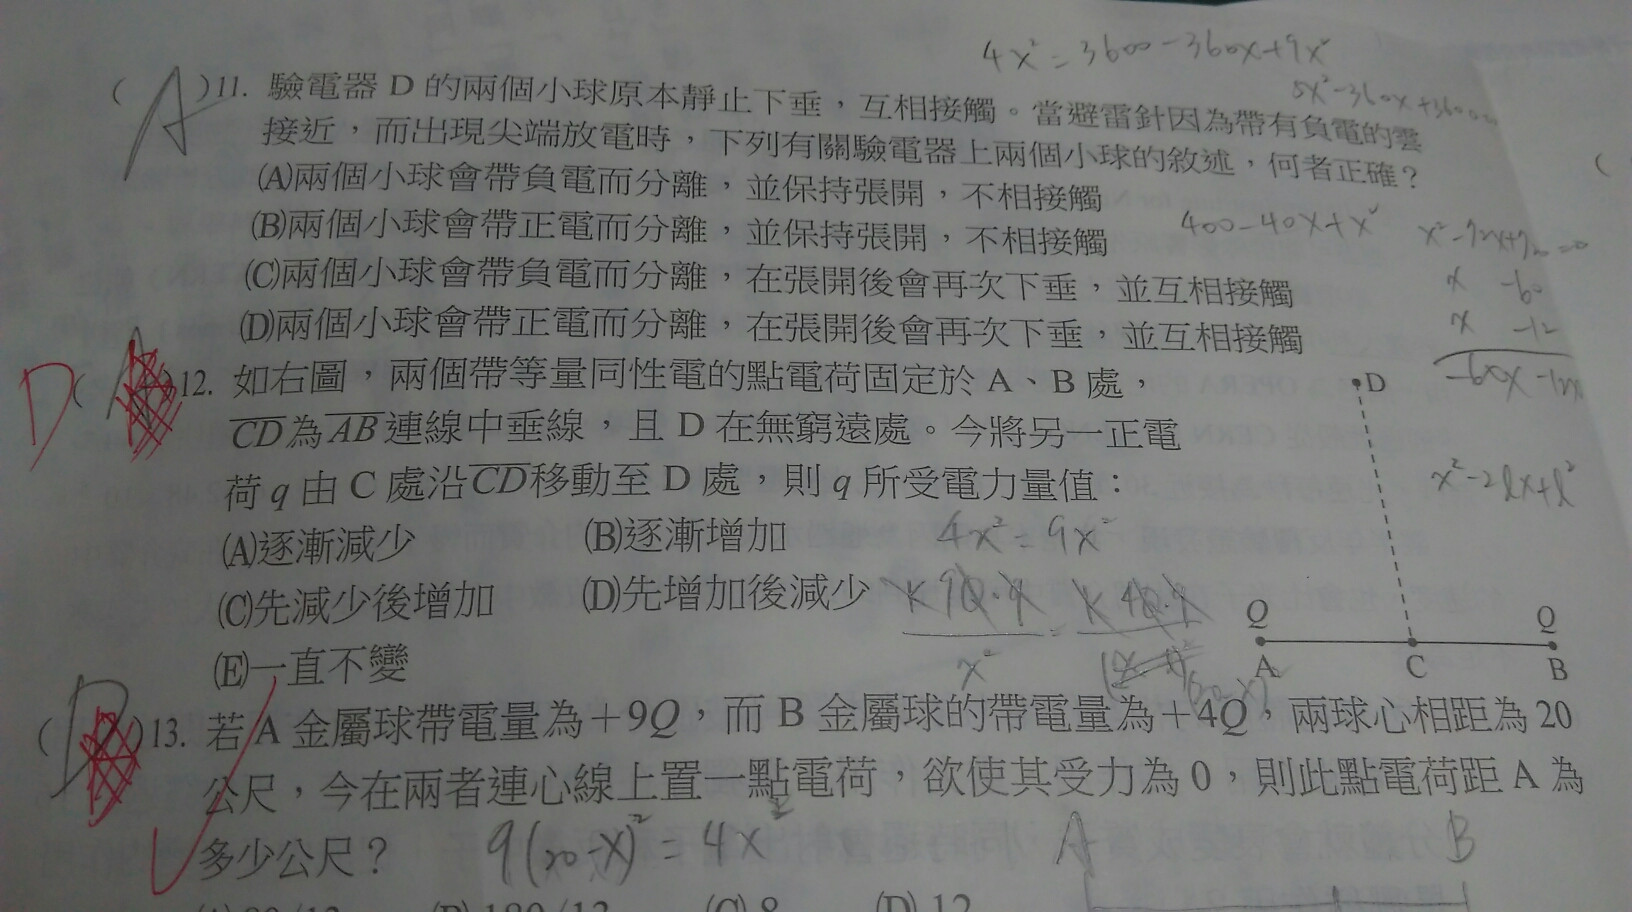 4x²=3600-360x+9x²
5x²-360x+3600
(A)11. 驗電器 D 的兩個小球原本靜止下垂，互相接觸。當避雷針因為帶有負電的雲
接近，而出現尖端放電時，下列有關驗電器上兩個小球的敘述，何者正確？
(A)兩個小球會帶負電而分離，並保持張開，不相接觸
(B)兩個小球會帶正電而分離，並保持張開，不相接觸
400-40x+x²
(C)兩個小球會帶負電而分離，在張開後會再次下垂，並互相接觸
(D)兩個小球會帶正電而分離，在張開後會再次下垂，並互相接觸
x -60
x -12
-60x -12x
D
12. 如右圖，兩個帶等量同性電的點電荷固定於 A、B 處，
CD為AB連線中垂線，且 D 在無窮遠處。今將另一正電
荷 q 由 C 處沿CD移動至 D 處，則 q 所受電力量值：
(A)逐漸減少 (B)逐漸增加
(C)先減少後增加 (D)先增加後減少
(E)一直不變
D
x²-2lx+l²
4x²=9x²
Q Q
A C B
13. 若 A 金屬球帶電量為＋9Q，而 B 金屬球的帶電量為＋4Q，兩球心相距為 20
公尺，今在兩者連心線上置一點電荷，欲使其受力為 0，則此點電荷距 A 為
多少公尺？
9(20-x)²=4x²
A B
(C) 8 (D) 12